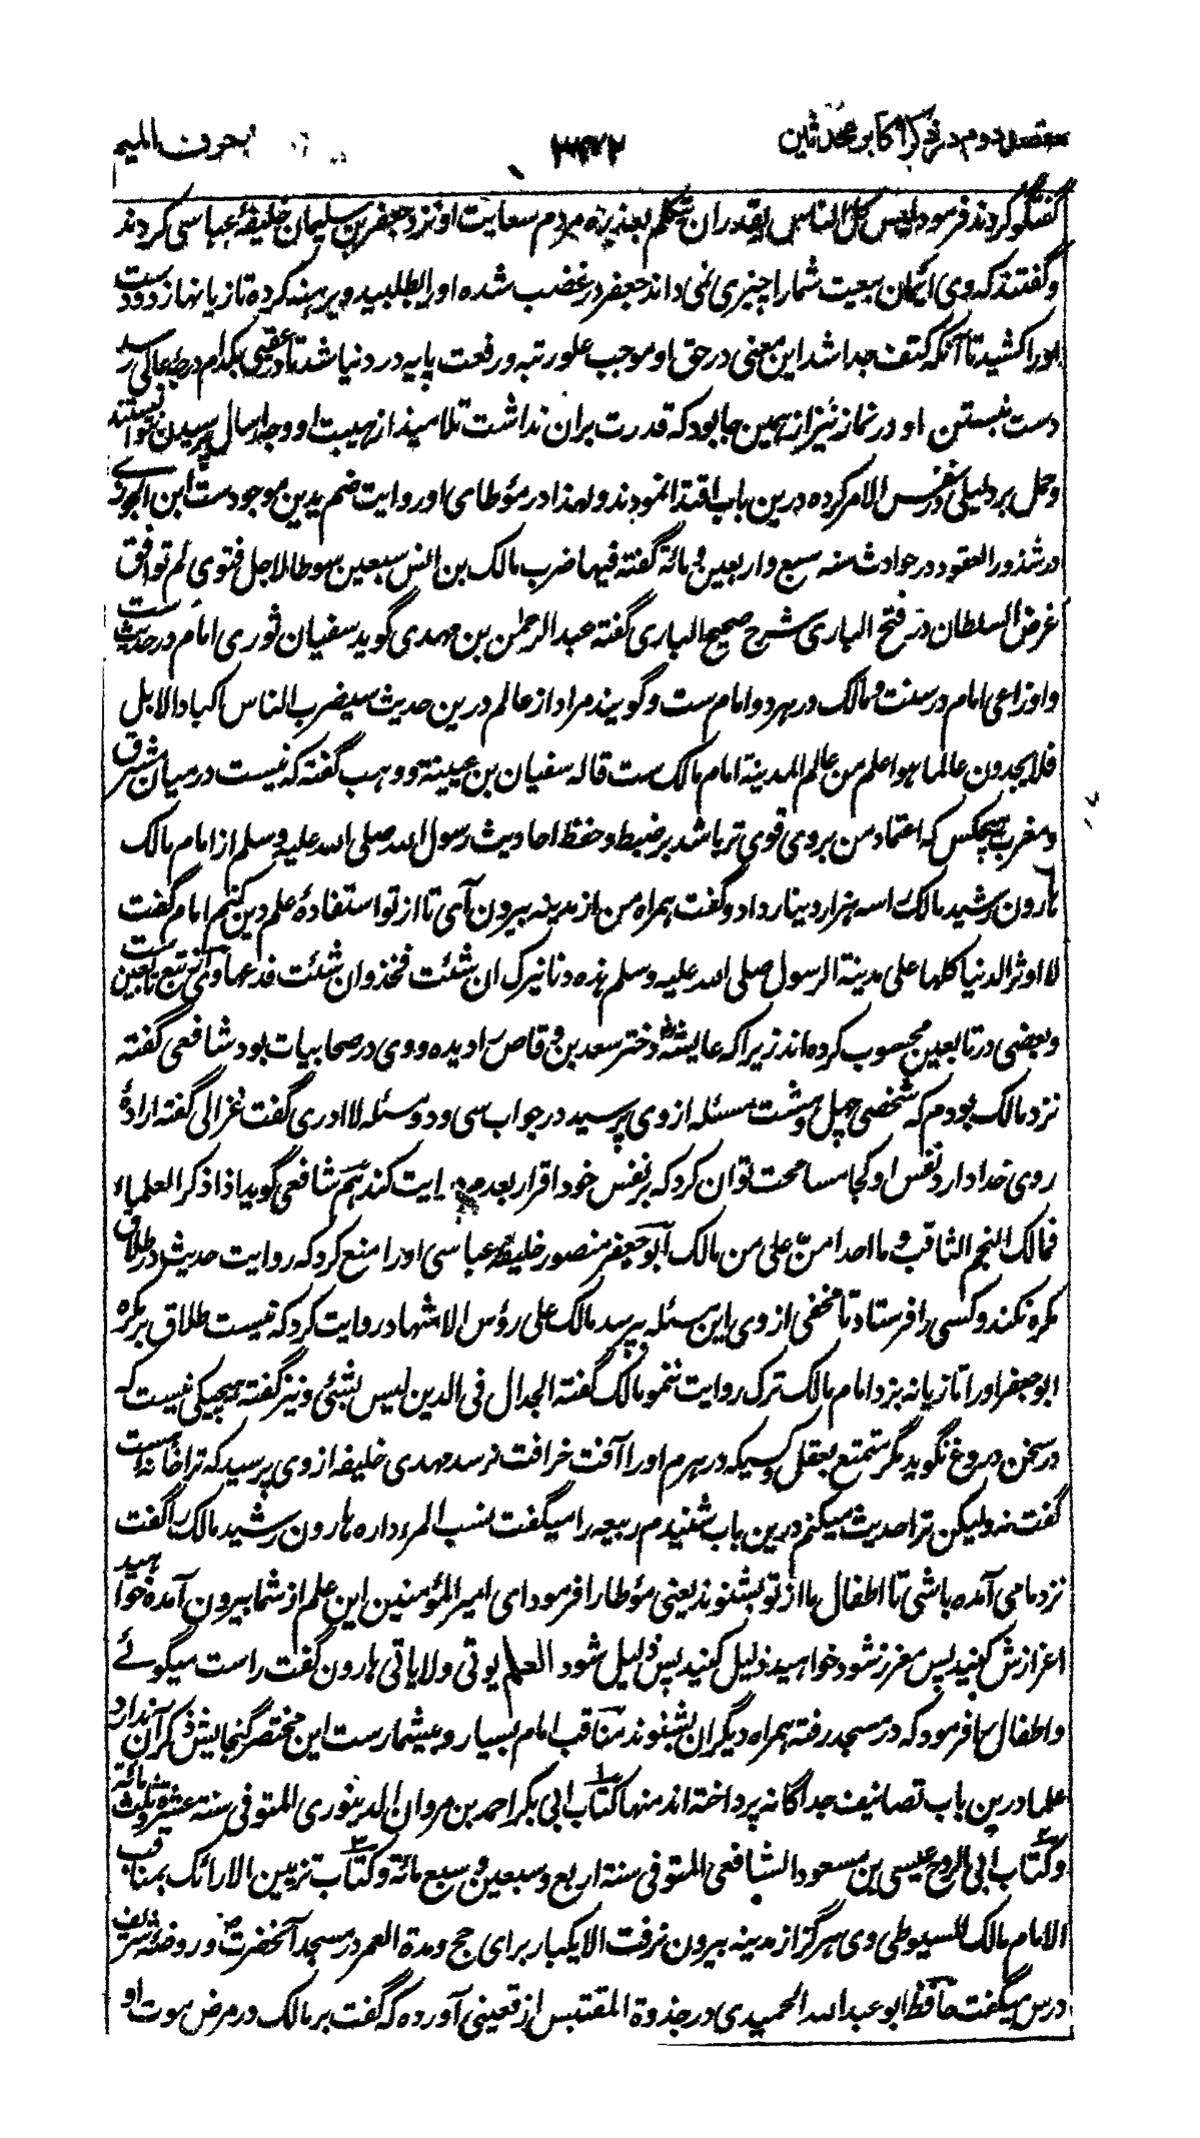 مقصد دوم در ذکر اکابر محدثین ۳۷۲ بحرف المیم
گفتگو کردند فرمود لیس کل الناس یقدر ان یتکلم بعذره مردم سعایت او نزد جعفر بن سلیمان خلیفهٔ عباسی کردند
و گفتند که وی ایمان بیعت شما را چیزی نمی داند جعفر در غضب شده او را طلبید و برهنه کرده تازیانها زد و دست
او را کشید تا آنکه کتف جدا شد این معنی در حق او موجب علو رتبه و رفعت پایه در دنیا شد تا در عقبی بکدام درجهٔ عالی رسد
دست نبستن او در نماز نیز از همین جا بود که قدرت بران نداشت تلامیذ از هیبت او وجه ارسال پرسیدن نتوانستند
و حمل بر دلیلی در نفس الامر کرده درین باب اقتدا نمودند و لهذا در مؤطای او روایت ضم یدین موجودست ابن الجوزی
در شذور العقود در حوادث سنه سبع و اربعین و مائة گفته فیها ضرب مالک بن انس سبعین سوطا لاجل فتوی لم توافق
غرض السلطان در فتح الباری شرح صحیح البخاری گفته عبد الرحمن بن مهدی گوید سفیان ثوری امام در حدیث ست
و اوزاعی امام در سنت و مالک در هر دو امام ست و گویند مراد از عالم درین حدیث سیضرب الناس اکباد الابل
فلا یجدون عالما هو اعلم من عالم المدینة امام مالک ست قاله سفیان بن عیینة و وهب گفته که نیست در میان مشرق
و مغرب هیچکس که اعتماد من بر وی قوی تر باشد بر ضبط و حفظ احادیث رسول الله صلی الله علیه وسلم از امام مالک
هارون رشید مالک را سه هزار دینار داد و گفت همراه من از مدینه بیرون آی تا از تو استفادهٔ علم دین کنم امام گفت
لا اوثر الدنیا کلها علی مدینة الرسول صلی الله علیه وسلم هذه دنانیرک ان شئت فخذ و ان شئت فدعها وی از تبع تابعین ست
و بعضی در تابعین محسوب کرده اند زیرا که عایشه دختر سعد بن وقاص را دیده و وی در صحابیات بود شافعی گفته
نزد مالک بودم که شخصی چهل و هشت مسئله از وی پرسید در جواب سی و دو مسئله لا ادری گفت غزالی گفته ارادهٔ
روی خدا دارد نفس او کجا مسامحت توان کرد که بر نفس خود اقرار بعدم درایت کند هم شافعی گوید اذا ذکر العلماء
فمالک النجم الثاقب و ما احد امن علی من مالک ابو جعفر منصور خلیفهٔ عباسی او را منع کرد که روایت حدیث در طلاق
مکره نکند و کسی را فرستاد تا مخفی از وی این مسئله بپرسد مالک علی رؤس الاشهاد روایت کرد که نیست طلاق بر مکره
ابو جعفر او را تازیانه بزد امام مالک ترک روایت ننمود مالک گفته الجدال فی الدین لیس بشئی و نیز گفته هیچیکی نیست که
در سخن دروغ نگوید مگر متمتع بعقل و کسیکه در هرم او را آفت خرافت نرسد مهدی خلیفه از وی پرسید که ترا خانه است
گفت نه ولیکن ترا حدیث میکنم درین باب شنیدم ربیعه را میگفت نسب المرء داره هارون رشید مالک را گفت
نزد ما می آمده باشی تا اطفال ما از تو بشنوند یعنی مؤطا را فرمود ای امیر المؤمنین این علم از شما بیرون آمده خواهید
اعزازش کنید پس معزز شود خواهید ذلیل کنید پس ذلیل شود العلم یوتی ولا یاتی هارون گفت راست میگوئے
و اطفال را فرمود که در مسجد رفته همراه دیگران بشنوند مناقب امام بسیار و بیشمارست این مختصر گنجایش ذکر آن ندارد
علما درین باب تصانیف جداگانه پرداخته اند منها کتاب ابی بکر احمد بن مروان الدینوری المتوفی سنة عشر و ثلث مائة
و کتاب ابی الروح عیسی بن مسعود الشافعی المتوفی سنة اربع و سبعین و سبع مائة و کتاب تزیین الارائک بمناقب
الامام مالک للسیوطی وی هرگز از مدینه بیرون نرفت الا یکبار برای حج و مدة العمر در مسجد آنحضرت ص و روضهٔ شریف
درس میگفت حافظ ابو عبد الله الحمیدی در جذوة المقتبس از قعینی آورده که گفت بر مالک در مرض موت او